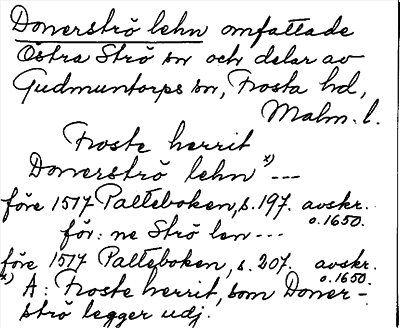 Donerströ lehn omfattade
Östra Strö sn och delar av
Gudmuntorps sn, Frosta hd,
Malm. l.
Froste herrit
Donerströ lehn *) ---
före 1517 Palteboken, s. 197. avskr.
o. 1650.
för: ne Strö len ---
före 1517 Palteboken, s. 207. avskr.
o. 1650.
*) A: Froste herrit, som Doner-
strö legger udj.